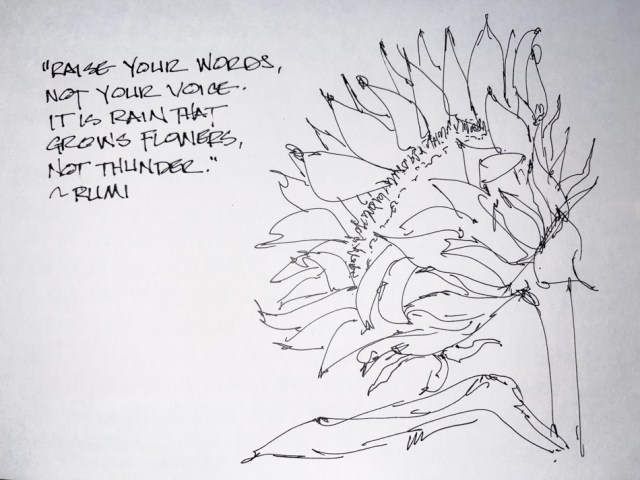 "RAISE YOUR WORDS,
NOT YOUR VOICE.
IT IS RAIN THAT
GROWS FLOWERS,
NOT THUNDER."
~RUMI